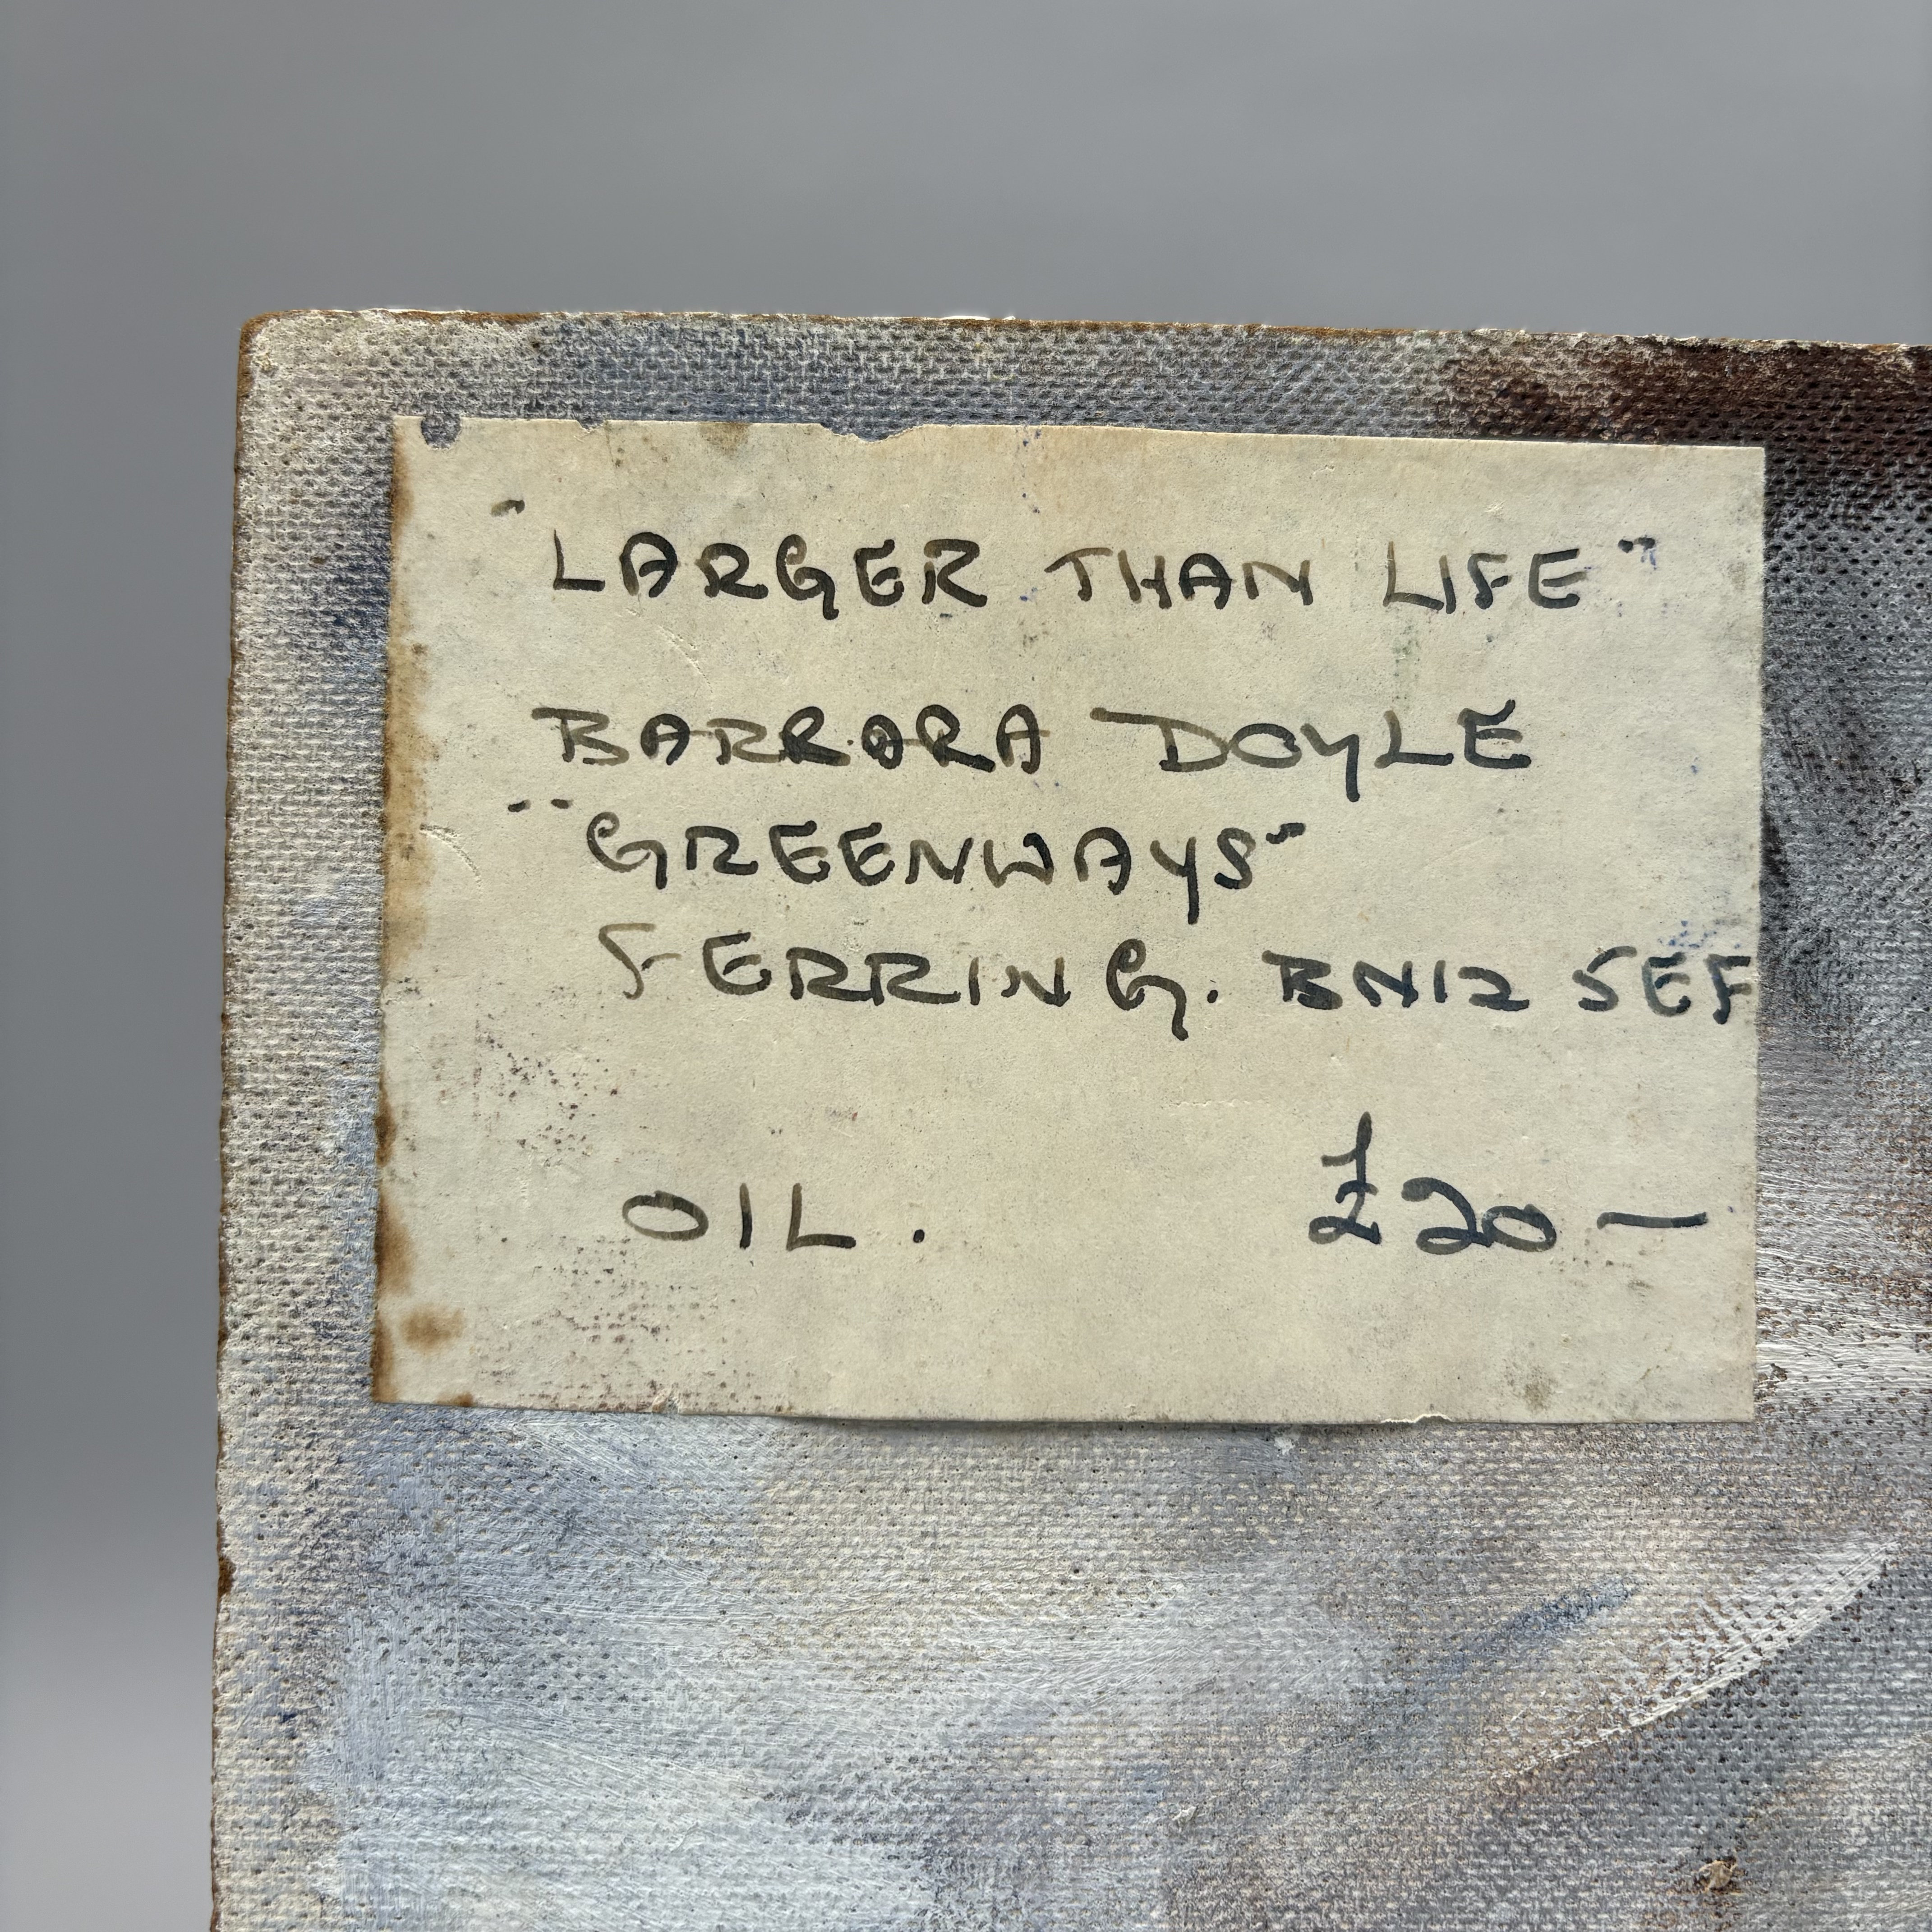 "LARGER THAN LIFE"
BARBARA DOYLE
"GREENWAYS"
FERRING. BN12 5EF
OIL. £20 —